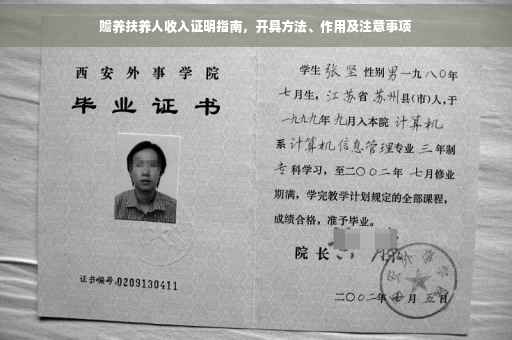 赡养扶养人收入证明指南，开具方法、作用及注意事项
西安外事学院
毕业证书
证书编号:0209130411
学生 张坚 性别男 一九八0年
七月生，江苏省苏州县(市)人,于
一九九九年九月入本院 计算机
系 计算机信息管理专业 三 年制
专科学习，至二〇〇二年 七月修业
期满，学完教学计划规定的全部课程，
成绩合格，准予毕业。
院 长
二〇〇二年 月 五日